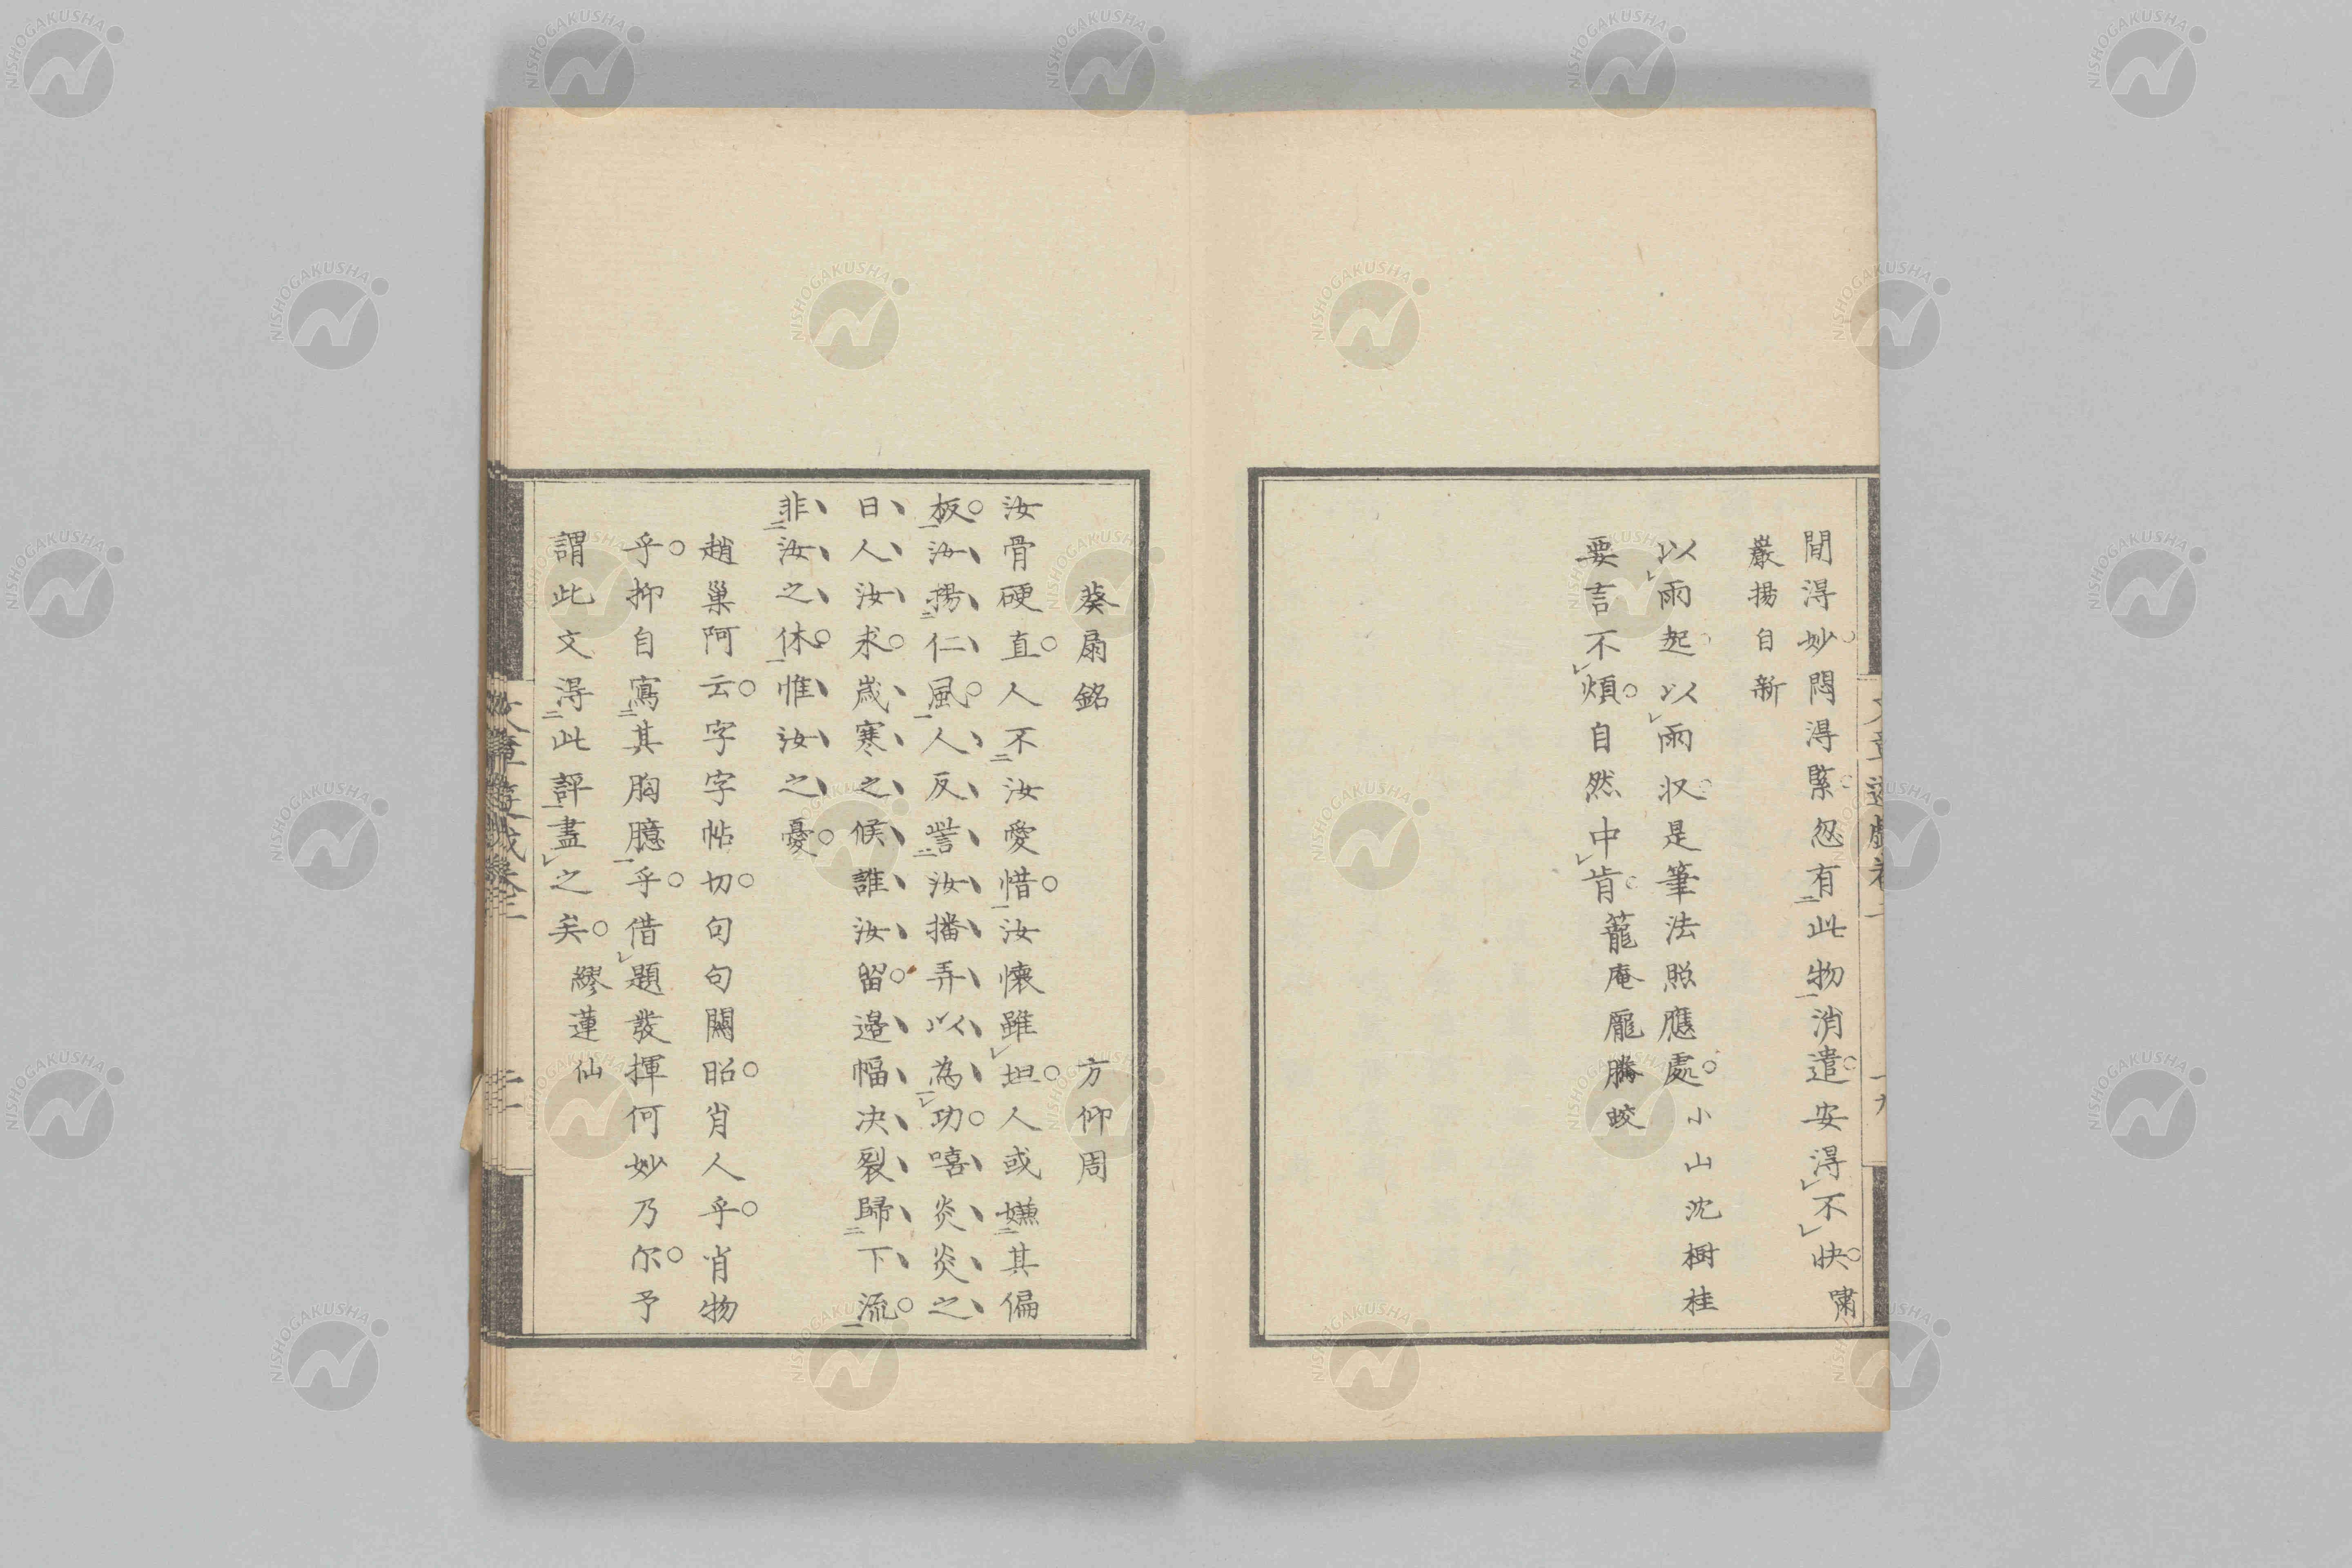 間淂妙悶淂緊忽有此物消遣安淂不快嘯
巖揚自新
以雨起以雨収是筆法照應處小山沈樹桂
要言不煩自然中肯蘢庵龎騰蛟
葵扇銘　方仰周
汝骨硬直人不汝愛惜汝懷雖坦人或嫌其偏
板汝揚仁風人反訾汝播弄以為功嘻炎炎之
日人汝求歳寒之候誰汝留邉幅決裂歸下流
非汝之休惟汝之憂
趙巢阿云字字帖切句句關昭肖人乎肖物
乎抑自寫其胸臆乎借題發揮何妙乃尓予
謂此文淂此評盡之矣繆蓮仙